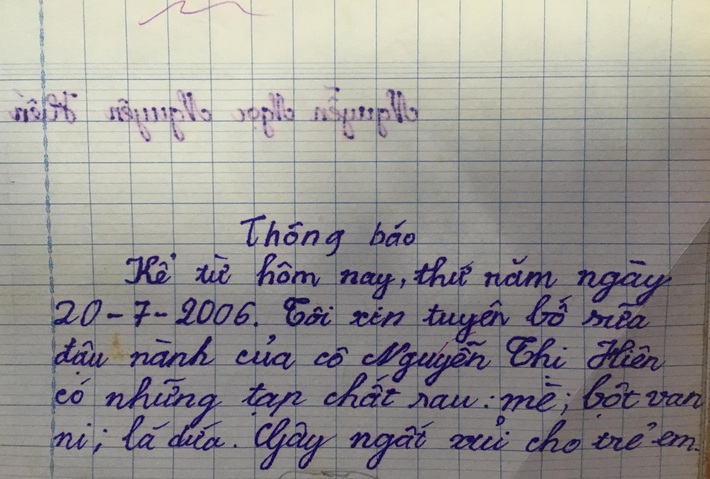 Nguyễn Ngọc Nguyên Kiên
Thông báo
Kể từ hôm nay, thứ năm ngày
20-7-2006. Tôi xin tuyên bố sữa
đậu nành của cô Nguyễn Thi Hiên
có những tạp chất sau: mè; bột van
ni; lá dứa. Gây ngất xỉu cho trẻ em.